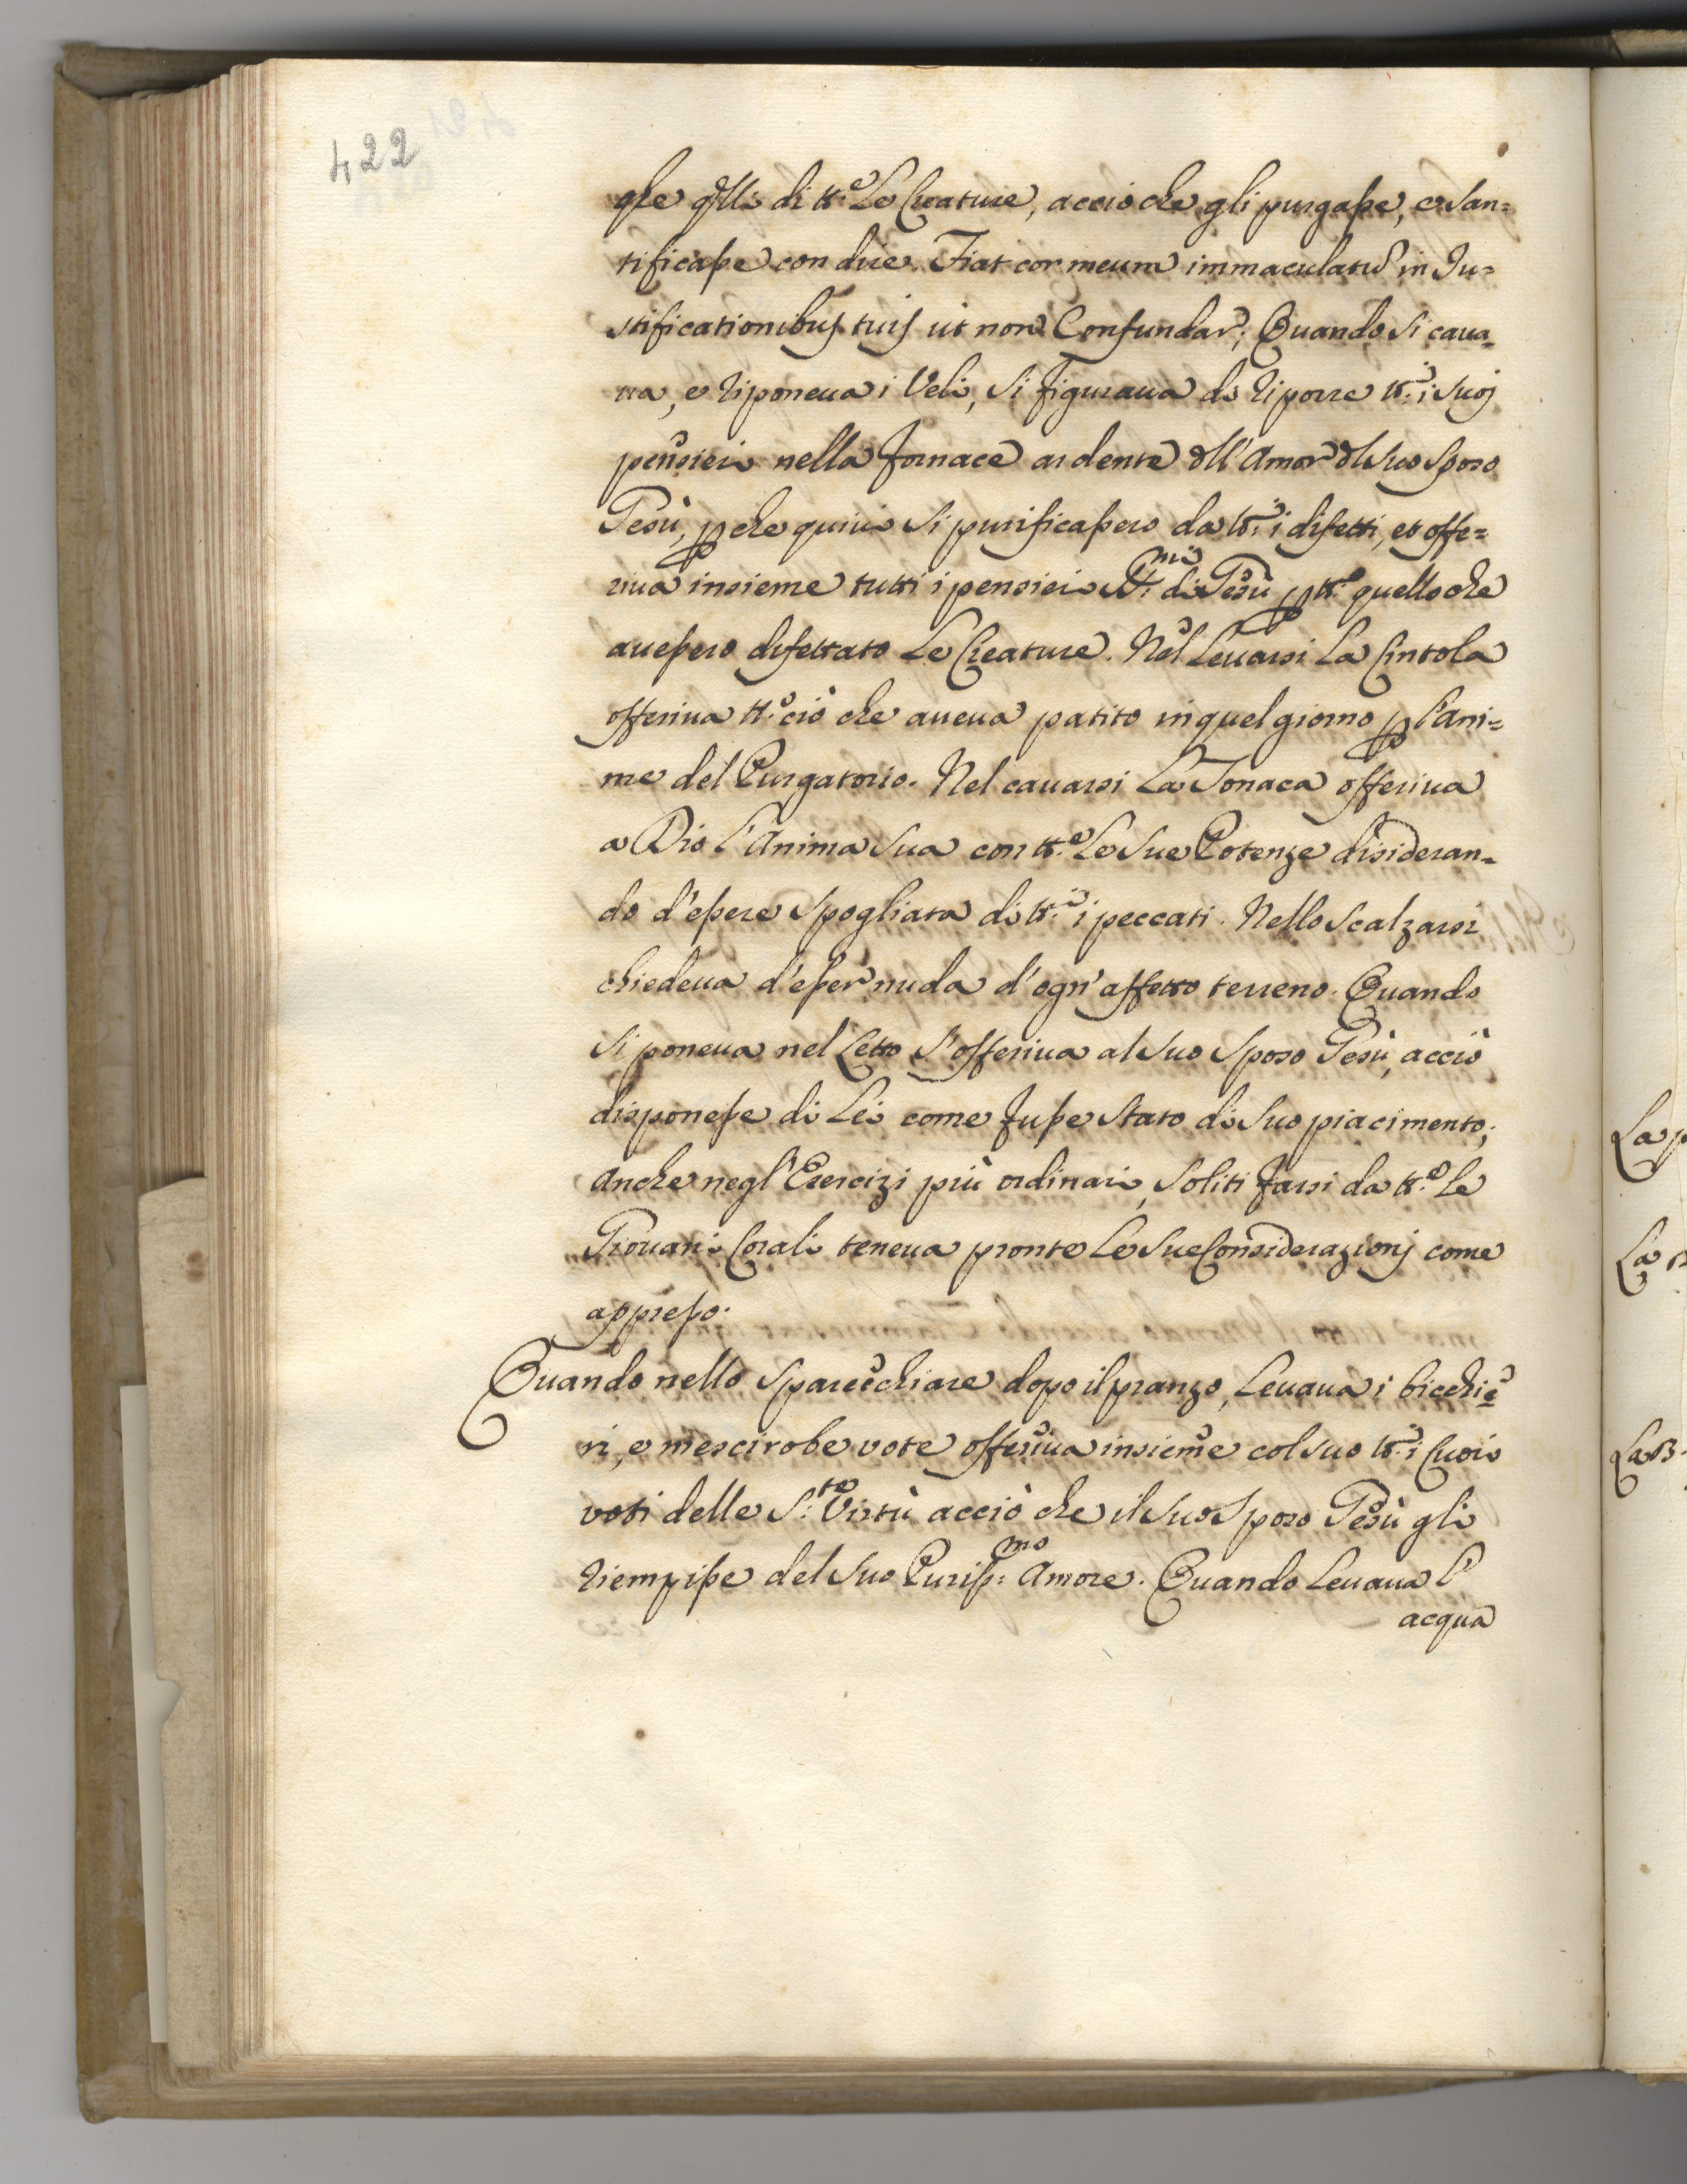 422
che qlli di tt.e Le Creature, acciò che gli purgasse, e San=
tificasse con dire. Fiat cor meum immaculatũ in Iu=
stificationibus tuis ut non Confundar; Quando Si caua=
ua, e riponeua i Veli, Si figuraua di riporre tt.i i Suoj
pensieri nella fornace ardente dll'Amor dl Suo Sposo
Gesù, p che quiui Si purificassero da tt.i i difetti, et offe=
riua insieme tutti i pensieri SS.mi di Gesù p tt.o quello che
auessero difettato Le Creature. Nel Leuarsi La Cintola
offeriua tt.o ciò che aueua patito in quel giorno p l'Ani=
me del Purgatorio. Nel cauarsi La Tonaca offeriua
a Dio l'Anima Sua con tt.e Le Sue Potenze disideran=
do d'essere Spogliata di tt.i i peccati. Nello Scalzarsi
chiedeua d'esser nuda d'ogn'affetto terreno. Quando
Si poneua nel Letto S'offeriua al Suo Sposo Gesù, acciò
disponesse di Lei come fusse Stato di Suo piacimento;
Anche negl'Esercizi più ordinari, Soliti farsi da tt.e Le
Giouani Corali teneua pronte Le Sue Considerazionj come
appresso.
Quando nello Sparecchiare dopo il pranzo, Leuaua i bicchie=
ri, e mescirobe vote offeriua insieme col suo tt.i i Cuori
voti delle S.te Virtù acciò che il Suo Sposo Gesù gli
riempisse del Suo Puriss:mo Amore. Quando Leuaua l'
acqua
La
La
La